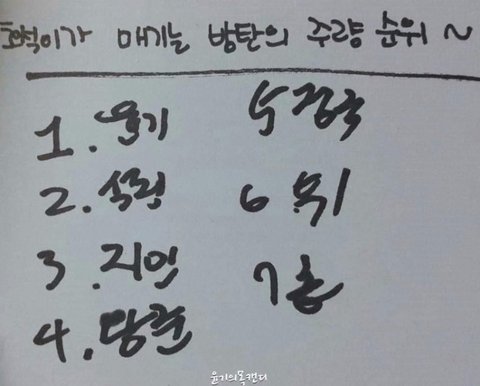 호석이가 매기는 방탄의 주량 순위 ~
1. 윤기
2. 석진
3. 지민
4. 남준
5 정국
6 뷔
7 홉
윤기의목캔디